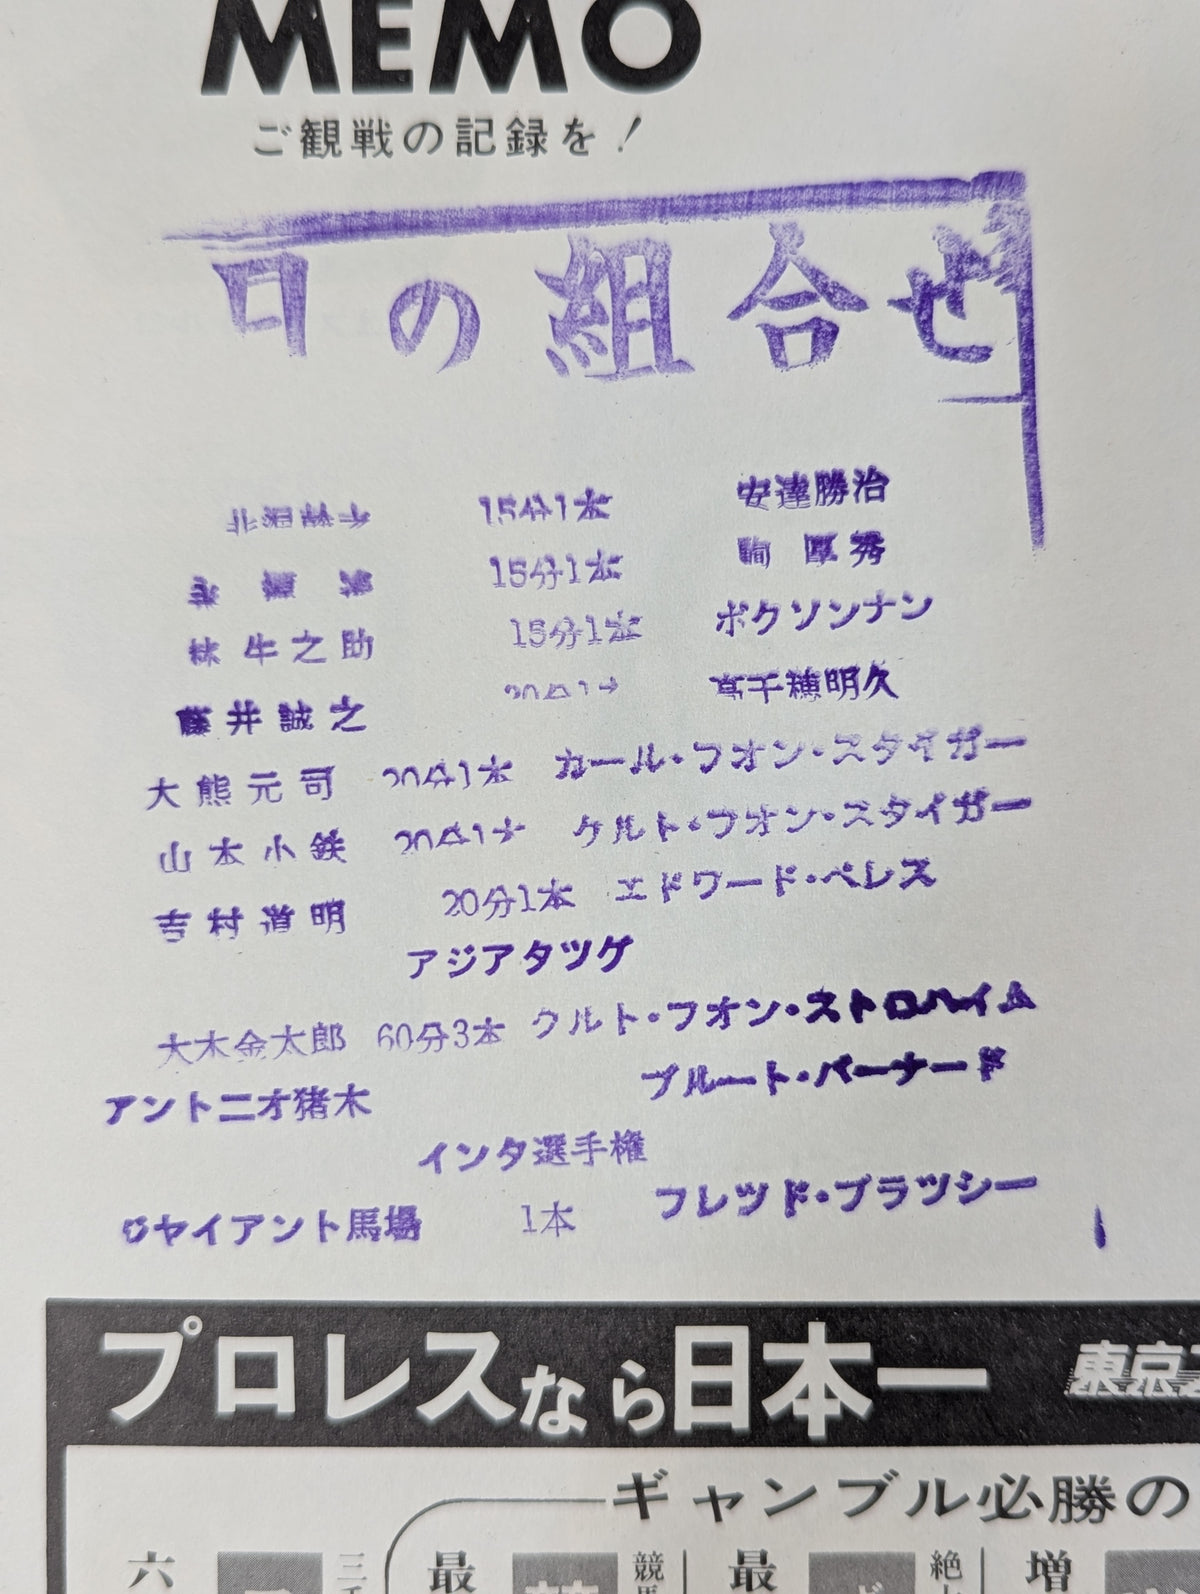 MEMO
ご観戦の記録を！
日の組合せ
北沢幹之 15分1本 安達勝治
永源遙 15分1本 駒厚秀
林牛之助 15分1本 ポクソンナン
藤井誠之 20分1本 高千穂明久
大熊元司 20分1本 カール・フオン・スタイガー
山本小鉄 20分1本 ケルト・フオン・スタイガー
吉村道明 20分1本 エドワード・ペレス
アジアタツグ
大木金太郎 60分3本 クルト・フオン・ストロハイム
アントニオ猪木 ブルート・バーナード
インタ選手権
ジヤイアント馬場 1本 フレツド・ブラツシー
プロレスなら日本一 東京
ギャンブル必勝の
六 最 競馬 最 絶 増